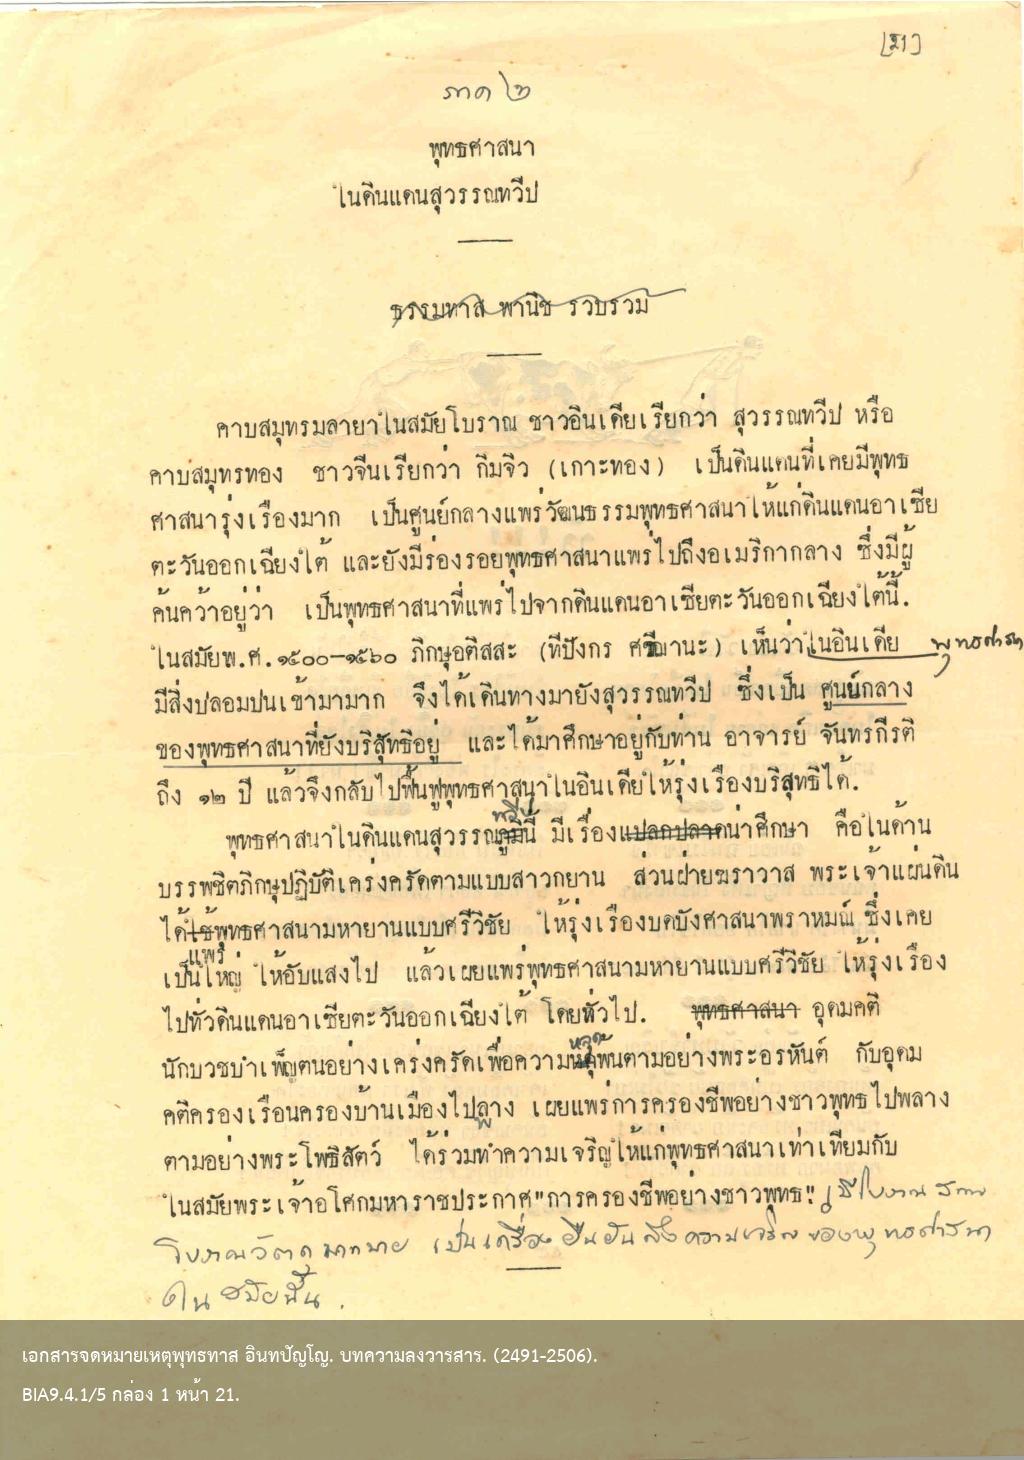 [๒๑]
ภาค ๒
พุทธศาสนา
ในดินแดนสุวรรณทวีป
ธรรมทาส พานิช รวบรวม
คาบสมุทรมลายาในสมัยโบราณ ชาวอินเดียเรียกว่า สุวรรณทวีป หรือ
คาบสมุทรทอง ชาวจีนเรียกว่า กิมจิว (เกาะทอง) เป็นดินแดนที่เคยมีพุทธ
ศาสนารุ่งเรืองมาก เป็นศูนย์กลางแพร่วัฒนธรรมพุทธศาสนาให้แก่ดินแดนอาเซีย
ตะวันออกเฉียงใต้ และยังมีร่องรอยพุทธศาสนาแพร่ไปถึงอเมริกากลาง ซึ่งมีผู้
ค้นคว้าอยู่ว่า เป็นพุทธศาสนาที่แพร่ไปจากดินแดนอาเซียตะวันออกเฉียงใต้นี้.
ในสมัยพ.ศ.๑๕๐๐-๑๕๖๐ ภิกษุอติสสะ (ทีปังกร ศรีญานะ) เห็นว่าในอินเดีย พุทธศาสนา
มีสิ่งปลอมปนเข้ามามาก จึงได้เดินทางมายังสุวรรณทวีป ซึ่งเป็น ศูนย์กลาง
ของพุทธศาสนาที่ยังบริสุทธิอยู่ และได้มาศึกษาอยู่กับท่าน อาจารย์ จันทรกีรติ
ถึง ๑๒ ปี แล้วจึงกลับไปฟื้นฟูพุทธศาสนาในอินเดียให้รุ่งเรืองบริสุทธิได้.
ทวีป
พุทธศาสนาในดินแดนสุวรรณภูมินี้ มีเรื่องแปลกปลาดน่าศึกษา คือในด้าน
บรรพชิตภิกษุปฏิบัติเคร่งครัดตามแบบสาวกยาน ส่วนฝ่ายฆราวาส พระเจ้าแผ่นดิน
ได้ใช้พุทธศาสนามหายานแบบศรีวิชัย ให้รุ่งเรืองบดบังศาสนาพราหมณ์ ซึ่งเคย
แพร่
เป็นใหญ่ ให้อับแสงไป แล้วเผยแพร่พุทธศาสนามหายานแบบศรีวิชัย ให้รุ่งเรือง
ไปทั่วดินแดนอาเซียตะวันออกเฉียงใต้ โดยทั่วไป. พุทธศาสนา อุดมคติ
หลุด
นักบวชบำเพ็ญตนอย่างเคร่งครัดเพื่อความพ้นตามอย่างพระอรหันต์ กับอุดม
คติครองเรือนครองบ้านเมืองไปพลาง เผยแพร่การครองชีพอย่างชาวพุทธไปพลาง
ตามอย่างพระโพธิสัตว์ ได้ร่วมทำความเจริญให้แก่พุทธศาสนาเท่าเทียมกับ
ในสมัยพระเจ้าอโศกมหาราชประกาศ"การครองชีพอย่างชาวพุทธ". มีโบราณสถาน
โบราณวัตถุมากมาย เป็นเครื่องยืนยันถึงความเจริญของพุทธศาสนา
ในสมัยนั้น.
เอกสารจดหมายเหตุพุทธทาส อินทปัญโญ. บทความลงวารสาร. (2491-2506).
BIA9.4.1/5 กล่อง 1 หน้า 21.